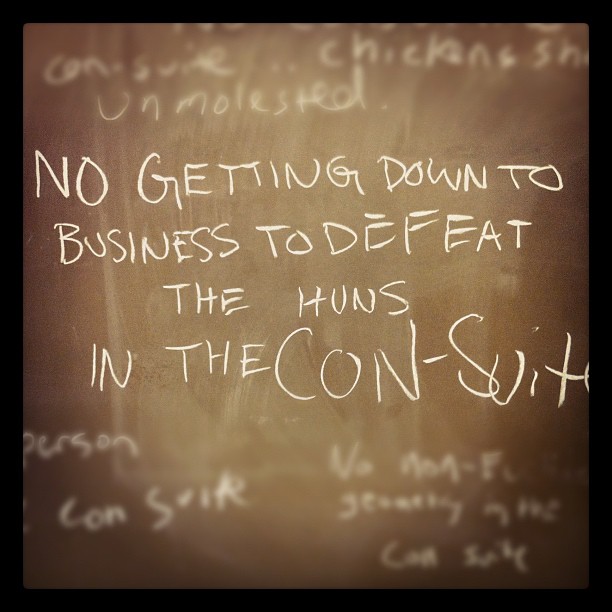 con-suite .. chickens sh
unmolested.
NO GETTING DOWN TO
BUSINESS TO DEFEAT
THE HUNS
IN THE CON-SUIT
person
Con Suite
No non-Eu
geometry in the
Con Suite